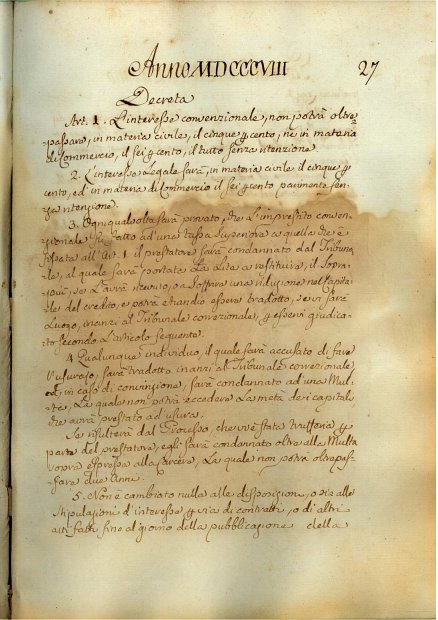 Anno MDCCCVIII 27
Decreta
Art. 1. L'interesse convenzionale, non potrà oltre
passare, in materia civile, il cinque p cento, ne in materia
di Commercio, il sei p cento, il tutto senza ritenzione.
2. L'interesse Legale sarà, in materia civile il cinque p
cento, ed in materia di Commercio il sei p cento parimente sen-
za ritenzione.
3. Ogni qual volta sarà provato, che L'imprestito conven-
zionale fu fatto ad una tassa superiore a quella che è
fissata all'Art. 1 il prestatore sarà condannato dal Tribuna
le, al quale sarà portata La Lite a restituire, il Sopra
più se L'avrà ricevuto, o a soffrire una riduzione sul Capita
le del credito, e potrà etiandio essere tradotto, se vi sarà
Luogo, inanzi al Tribunale correzionale, p esservi giudica-
to secondo L'articolo seguente.
4 Qualunque individuo, il quale sarà accusato di fare
L'usurajo, sarà tradotto inanzi al Tribunale correzionale
ed, in caso di convinzione, sarà condannato ad una Mul-
ta, La quale non potrà eccedere La metà dei capitali
che avrà prestato ad usura.
Se risulterà dal Processo, che vi è stata trufferia p
parte del prestatore, egli sarà condannato oltre alla Multa
sopra espressa alla Carcere, La quale non potrà oltrepas-
sare due Anni.
5. Non è cambiato nulla alle disposizioni, o sie alle
stipulazioni d'interesse, p via di contratti, o di altri
atti fatti fino al giorno della pubblicazione della